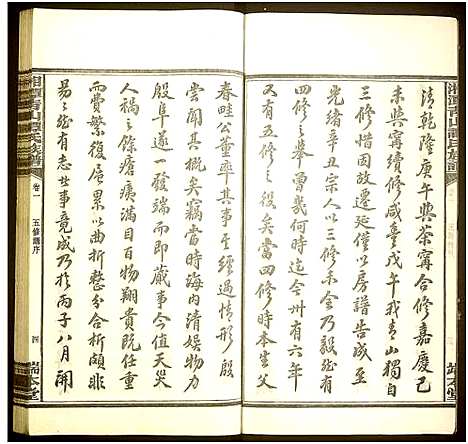 清乾隆庚午與茶甯合修嘉慶己
未與甯續修咸豐戊午我青山獨自
三修憾於遷延僅以房譜告成至
光緒辛丑宗人以三修未全乃毅然有
四修之舉曾幾何時迄今卅有六年
又有五修之役矣當四修時本生父
春畦公董率其事之經過情形殷
嘗聞其概矣竊當時海內清娛物力
殷阜遂一發端而即蕆事今值天災
人禍之餘瘡痍滿目百物翔貴既任重
而費繁復層累以曲折整分合析頗非
易之就緒有志此事竟成乃於丙子八月開
湘潭青山譚氏族譜
卷一
五修譜序
四
端本堂
湘潭青山譚氏族譜
端本堂